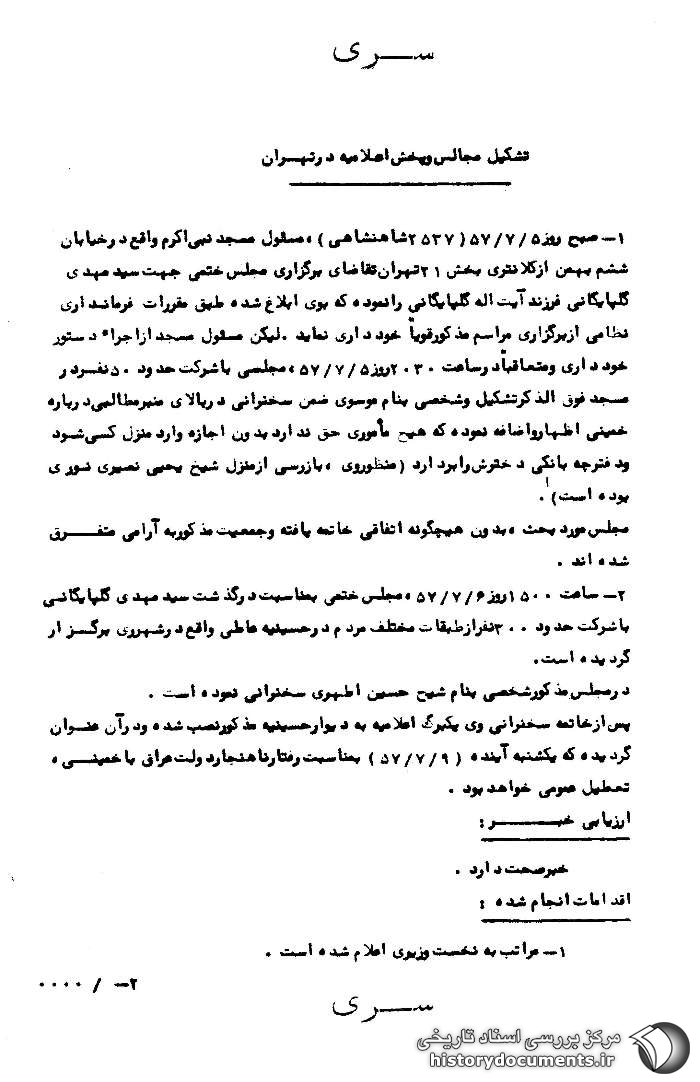 ســری
تشکیل مجالس وپخش اعلامیه درتهـران
۱- صبح روز۵۷/۷/۵ (۲۵۳۷شاهنشاهی)، مسئول مسجد نبی‌اکرم واقع درخیابان
ششم بهمن ازکلانتری بخش ۲۱تهران‌تقاضای برگزاری مجلس ختمی جهت سید مهدی
گلپایگانی فرزند آیت اله گلپایگانی رانموده که بوی ابلاغ شده طبق مقررات فرمانداری
نظامی ازبرگزاری مراسم مذکورقویاً خودداری نماید .لیکن مسئول مسجد ازاجراء دستور
خودداری ومتعاقباً درساعت ۲۰۳۰روز۵۷/۷/۵، مجلسی باشرکت حدود ۵۰نفردر
مسجد فوق الذکرتشکیل وشخصی بنام موسوی ضمن سخنرانی دربالای منبرمطالبی‌درباره
خمینی اظهارواضافه نموده که هیچ مأموری حق نداردبدون اجازه وارد منزل کسی‌شود
ودفترچه بانکی دخترش‌رابردارد (منظوروی ، بازرسی ازمنزل شیخ یحیی نصیری نوری
بوده است) .
مجلس مورد بحث ، بدون هیچگونه اتفاقی خاتمه یافته وجمعیت مذکوربه آرامی متفـــرق
شده اند .
۲- ساعت ۱۵۰۰روز ۵۷/۷/۶، مجلس ختمی بمناسبت درگذشت سید مهدی گلپایگانـی
باشرکت حدود ۳۰۰نفرازطبقات مختلف مردم درحسینیه عاطی واقع درشهرری برگـزار
گردیده است.
درمجلس مذکورشخصی بنام شیخ حسین اطهری سخنرانی نموده است .
پس ازخاتمه سخنرانی وی یکبرگ اعلامیه به دیوارحسینیه مذکورنصب شده ودرآن عنوان
گردیده که یکشنبه آینده (۵۷/۷/۹) بمناسبت رفتارناهنجاردولت عراق باخمینـی ،
تعطیل عمومی خواهد بود .
ارزیابی خبـــــر :
خبرصحت دارد .
اقدامات انجام شده :
۱- مراتب به نخست وزیری اعلام شده است .
۲- / ۰۰۰۰
ســری
مرکز بررسی اسناد تاریخی
historydocuments.ir